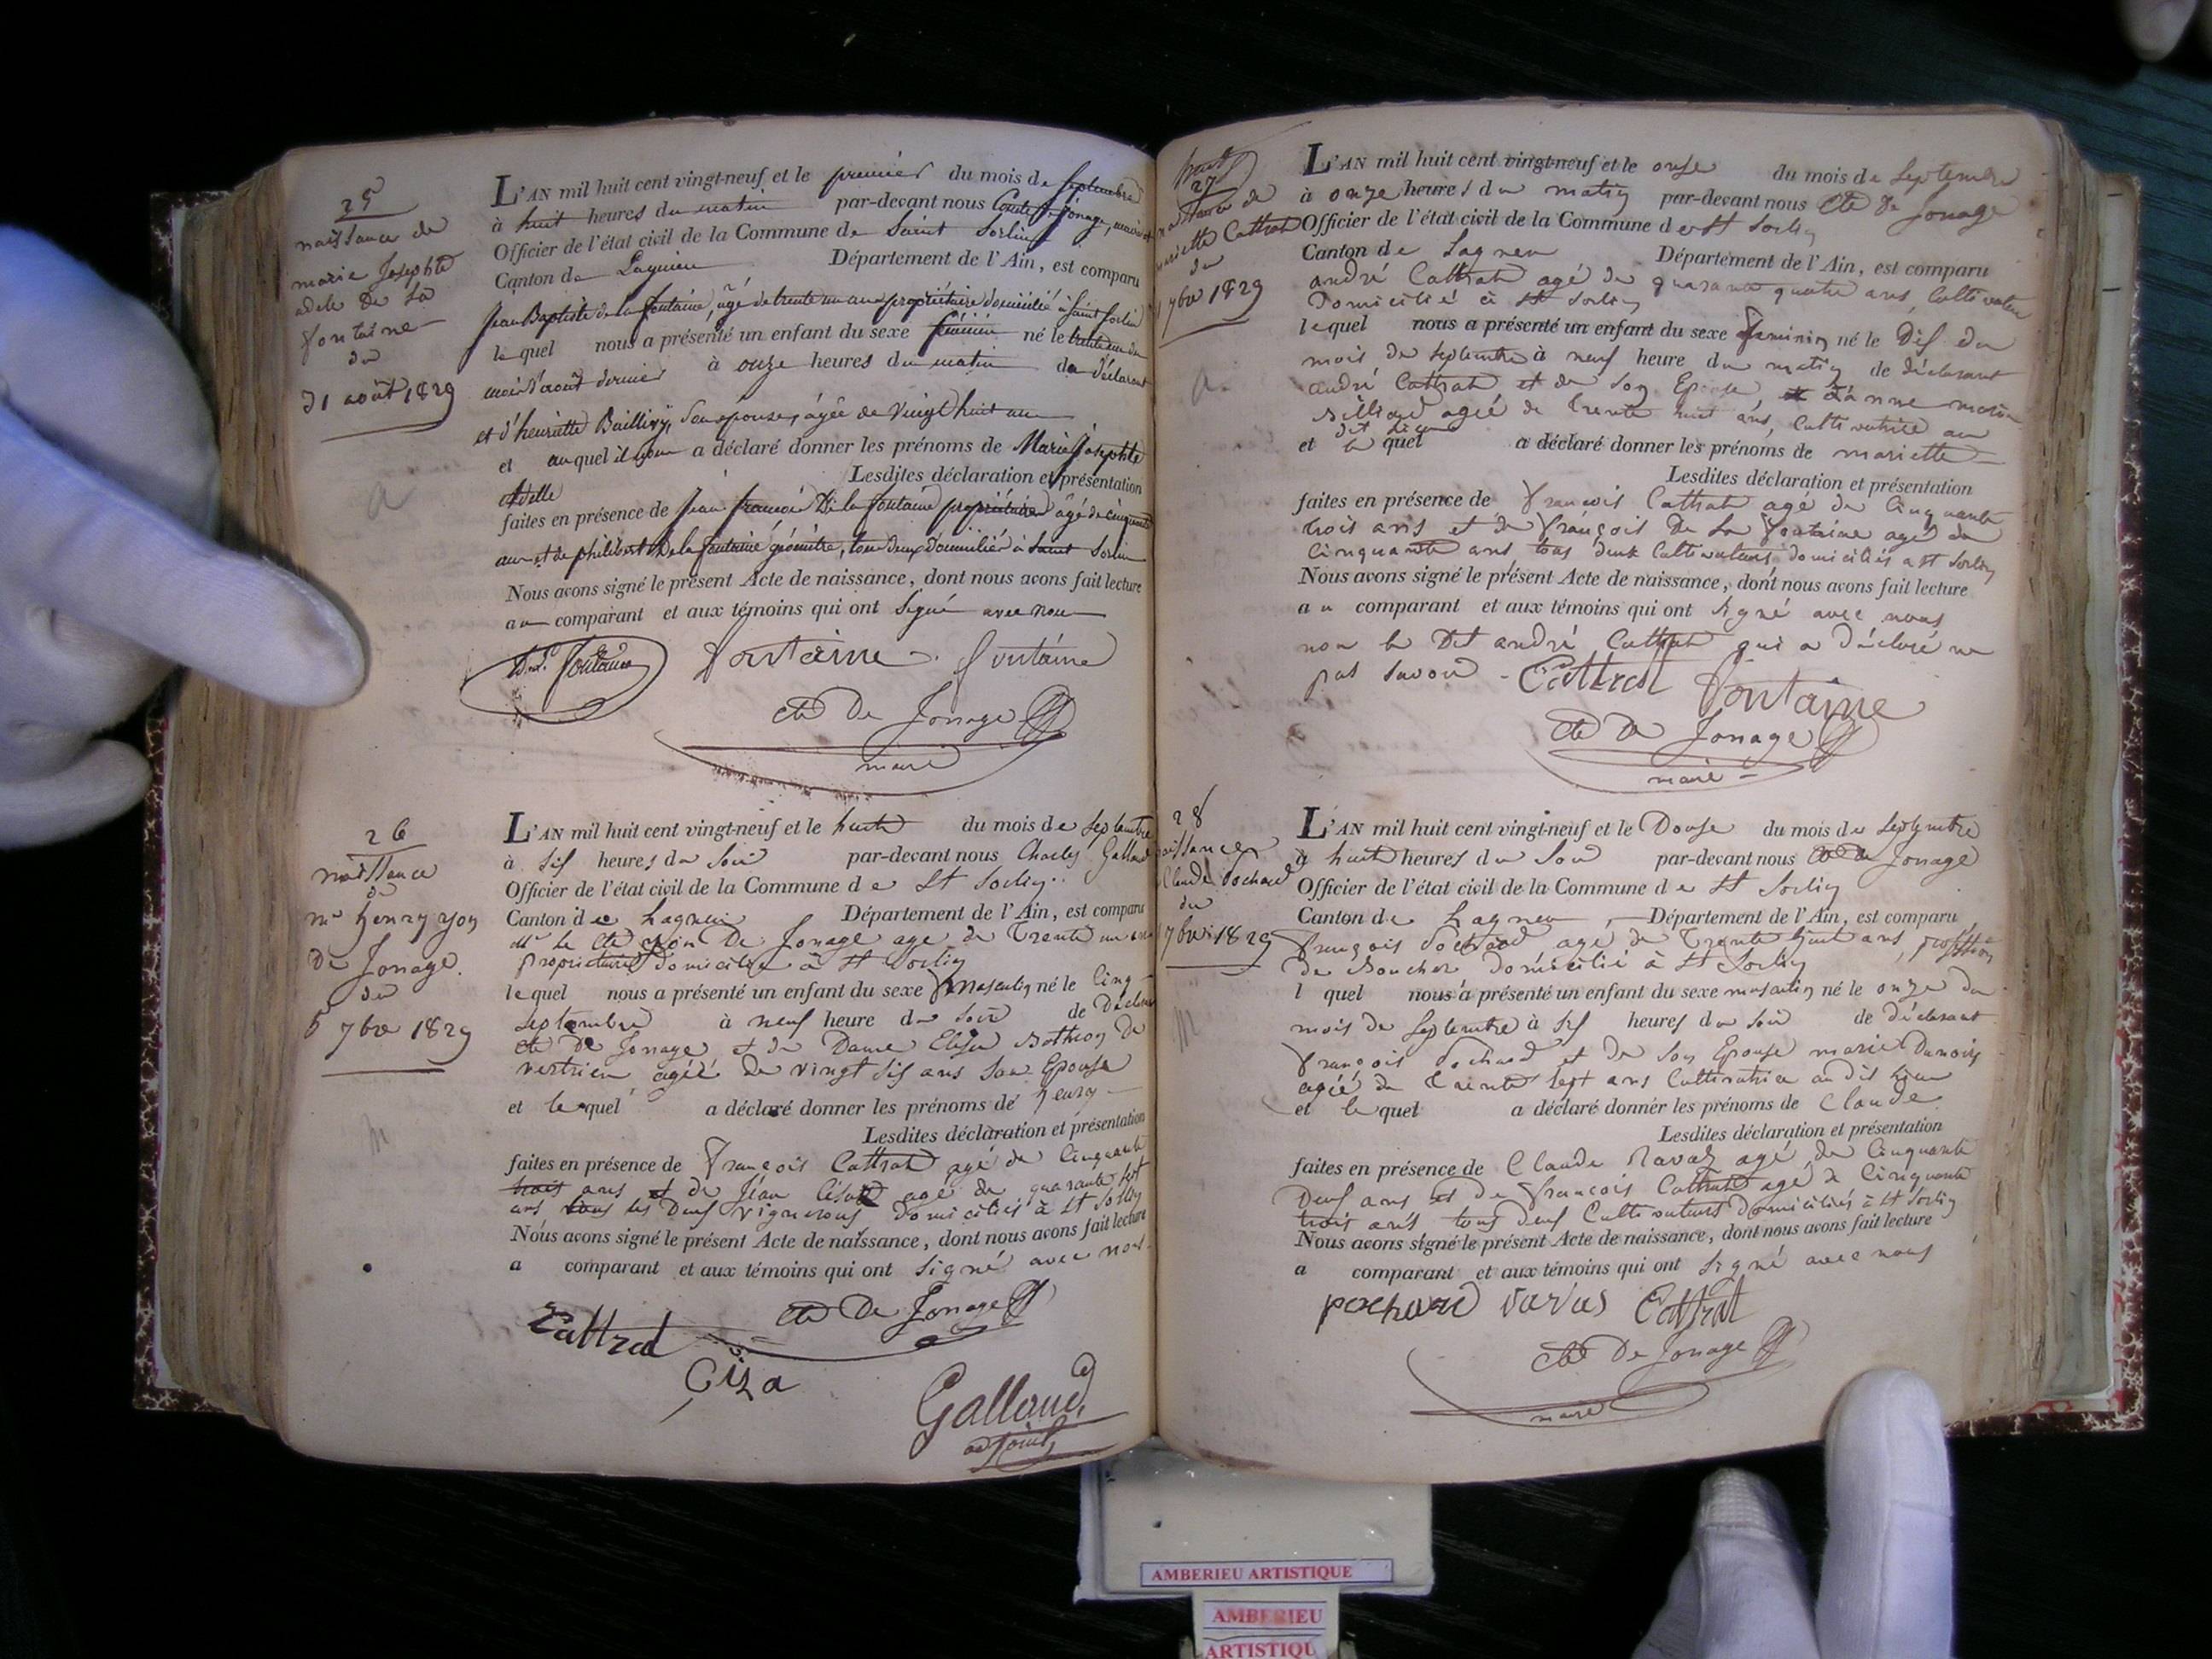 25
naissance de
marie Josephte
adele De La
fontaine
du
31 août 1829
L'AN mil huit cent vingt-neuf et le premier du mois de septembre
à huit heures du matin par-devant nous Comte de Jonage, maire
Officier de l'état civil de la Commune de Saint Sorlin
Canton de Lagnieu Département de l'Ain, est comparu
Jean Baptiste de la fontaine, âgé de trente un ans propriétaire domicilié à Saint Sorlin
lequel nous a présenté un enfant du sexe féminin né le trente un du
mois d'août dernier à onze heures du matin du déclarant
et d'henriette Baillivy, son épouse, âgée de vingt huit ans
et auquel il nous a déclaré donner les prénoms de Marie Josephte
Adelle Lesdites déclaration et présentation
faites en présence de Jean françois De la fontaine propriétaire âgé de cinquante
ans et de philibert De la fontaine géomètre, tous deux domiciliés à Saint Sorlin
Nous avons signé le présent Acte de naissance, dont nous avons fait lecture
au comparant et aux témoins qui ont signé avec nous
Fontaine fontaine
cte De Jonage
maire
26
naissance
de
mr henry yon
De Jonage
du
5 7bre 1829
L'AN mil huit cent vingt-neuf et le huit du mois de septembre
à six heures du soir par-devant nous Charles Galland
Officier de l'état civil de la Commune de St Sorlin
Canton de Lagneu Département de l'Ain, est comparu
Mr Le Cte yon De Jonage agé de trente un ans
propriétaire domicilié à St Sorlin
lequel nous a présenté un enfant du sexe masculin né le cinq
septembre à neuf heure du soir de Déclarant
cte De Jonage et de Dame Elisa Bothion de
vertrieu agéé de vingt six ans son Epouse
et le quel a déclaré donner les prénoms de henry
Lesdites déclaration et présentation
faites en présence de françois Cattrat agé de Cinquante
trois ans et de Jean agé de quarante sept
ans tous les deux vignerons domiciliés à St Sorlin
Nous avons signé le présent Acte de naissance, dont nous avons fait lecture
a comparant et aux témoins qui ont signé avec nous
Cattrat cte De Jonage
Ciza
Galland
adjoint
27
naissance de
mariette Cattrat
du
7bre 1829
L'AN mil huit cent vingt-neuf et le onse du mois de septembre
à onze heures du matin par-devant nous Cte De Jonage
Officier de l'état civil de la Commune de St Sorlin
Canton de Lagneu Département de l'Ain, est comparu
andré Cattrat agé de quarante quatre ans, Cultivateur
Domicilié à St Sorlin
lequel nous a présenté un enfant du sexe feminin né le Dix du
mois de septembre à neuf heure du matin de déclarant
andré Cattrat et de son Epouse, janne marie
agéé de trente huit ans, Cultivatrice au
dit Lieu
et le quel a déclaré donner les prénoms de mariette
Lesdites déclaration et présentation
faites en présence de françois Cattrat agé de Cinquante
trois ans et de françois De La fontaine agé de
Cinquante ans tous deux Cultivateurs domiciliés a St Sorlin
Nous avons signé le présent Acte de naissance, dont nous avons fait lecture
au comparant et aux témoins qui ont signé avec nous
non le Dit andré Cattrat qui a déclaré ne
pas savoir Cattrat fontaine
cte De Jonage
maire
28
naissance
Claude Pochard
du
7bre 1829
L'AN mil huit cent vingt-neuf et le Douse du mois de septembre
à huit heures du soir par-devant nous Cte de Jonage
Officier de l'état civil de la Commune de St Sorlin
Canton de Lagneu, Département de l'Ain, est comparu
françois Pochard agé de trente huit ans, profession
de Boucher domicilié à St Sorlin
l quel nous a présenté un enfant du sexe masculin né le onze du
mois de septembre à six heures du soir de déclarant
françois Pochard et de son Epouse marie Dunoix
agéé de trente sept ans Cultivatrice au dit Lieu
et le quel a déclaré donner les prénoms de Claude
Lesdites déclaration et présentation
faites en présence de Claude Ravas agé de Cinquante
Deux ans et de françois Cattrat agé de Cinquante
trois ans tous deux Cultivateurs domiciliés à St Sorlin
Nous avons signé le présent Acte de naissance, dont nous avons fait lecture
a comparant et aux témoins qui ont signé avec nous
pochard Cattrat
cte De Jonage
maire
AMBERIEU ARTISTIQUE
AMBERIEU
ARTISTIQU